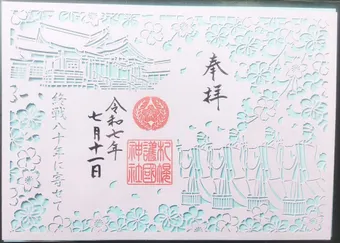 奉拝
令和七年
七月十一日
札幌
護國
神社
終戦八十年に寄せて